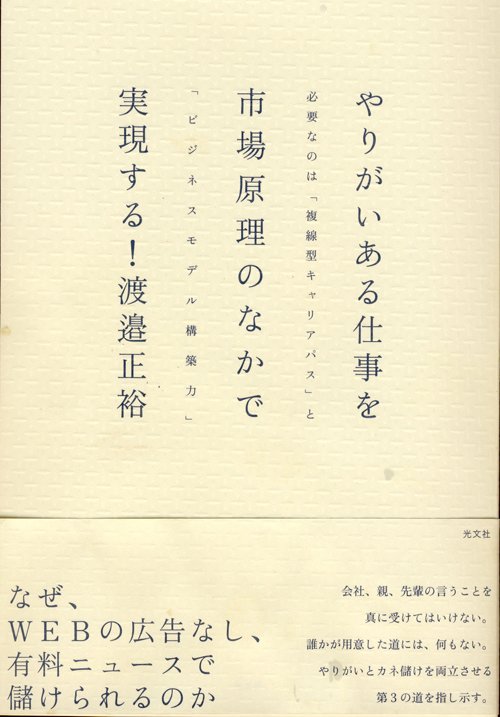 やりがいある仕事を
必要なのは「複線型キャリアパス」と
市場原理のなかで
「ビジネスモデル構築力」
実現する！渡邉正裕
光文社
会社、親、先輩の言うことを
真に受けてはいけない。
誰かが用意した道には、何もない。
やりがいとカネ儲けを両立させる
第３の道を指し示す。
なぜ、
ＷＥＢの広告なし、
有料ニュースで
儲けられるのか